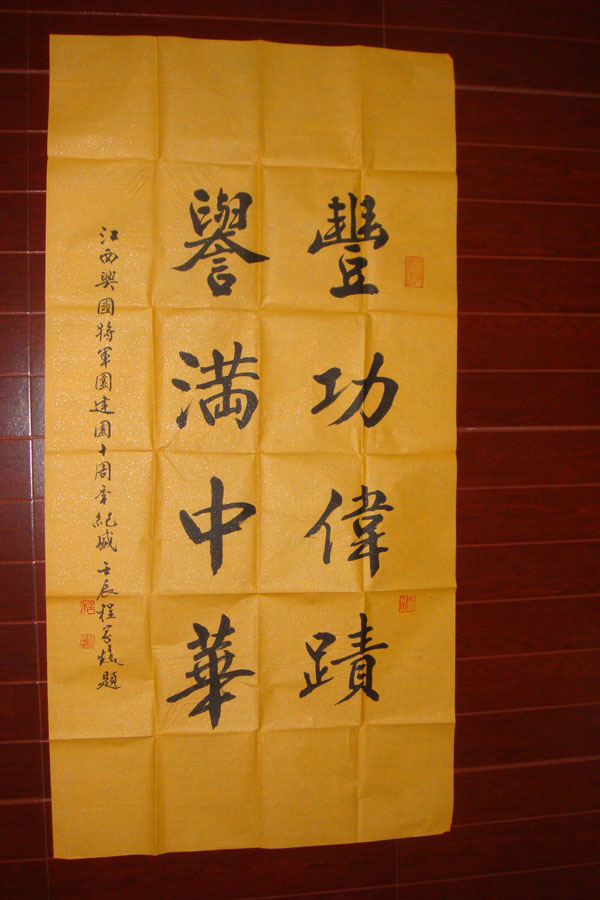 豐功偉蹟
譽滿中華
江西興國將軍園建園十周年紀盛 壬辰程家焕題